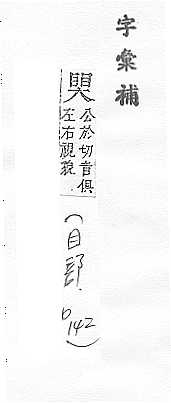 字彙補
公於切音俱
左右視貌
(目部.
142)